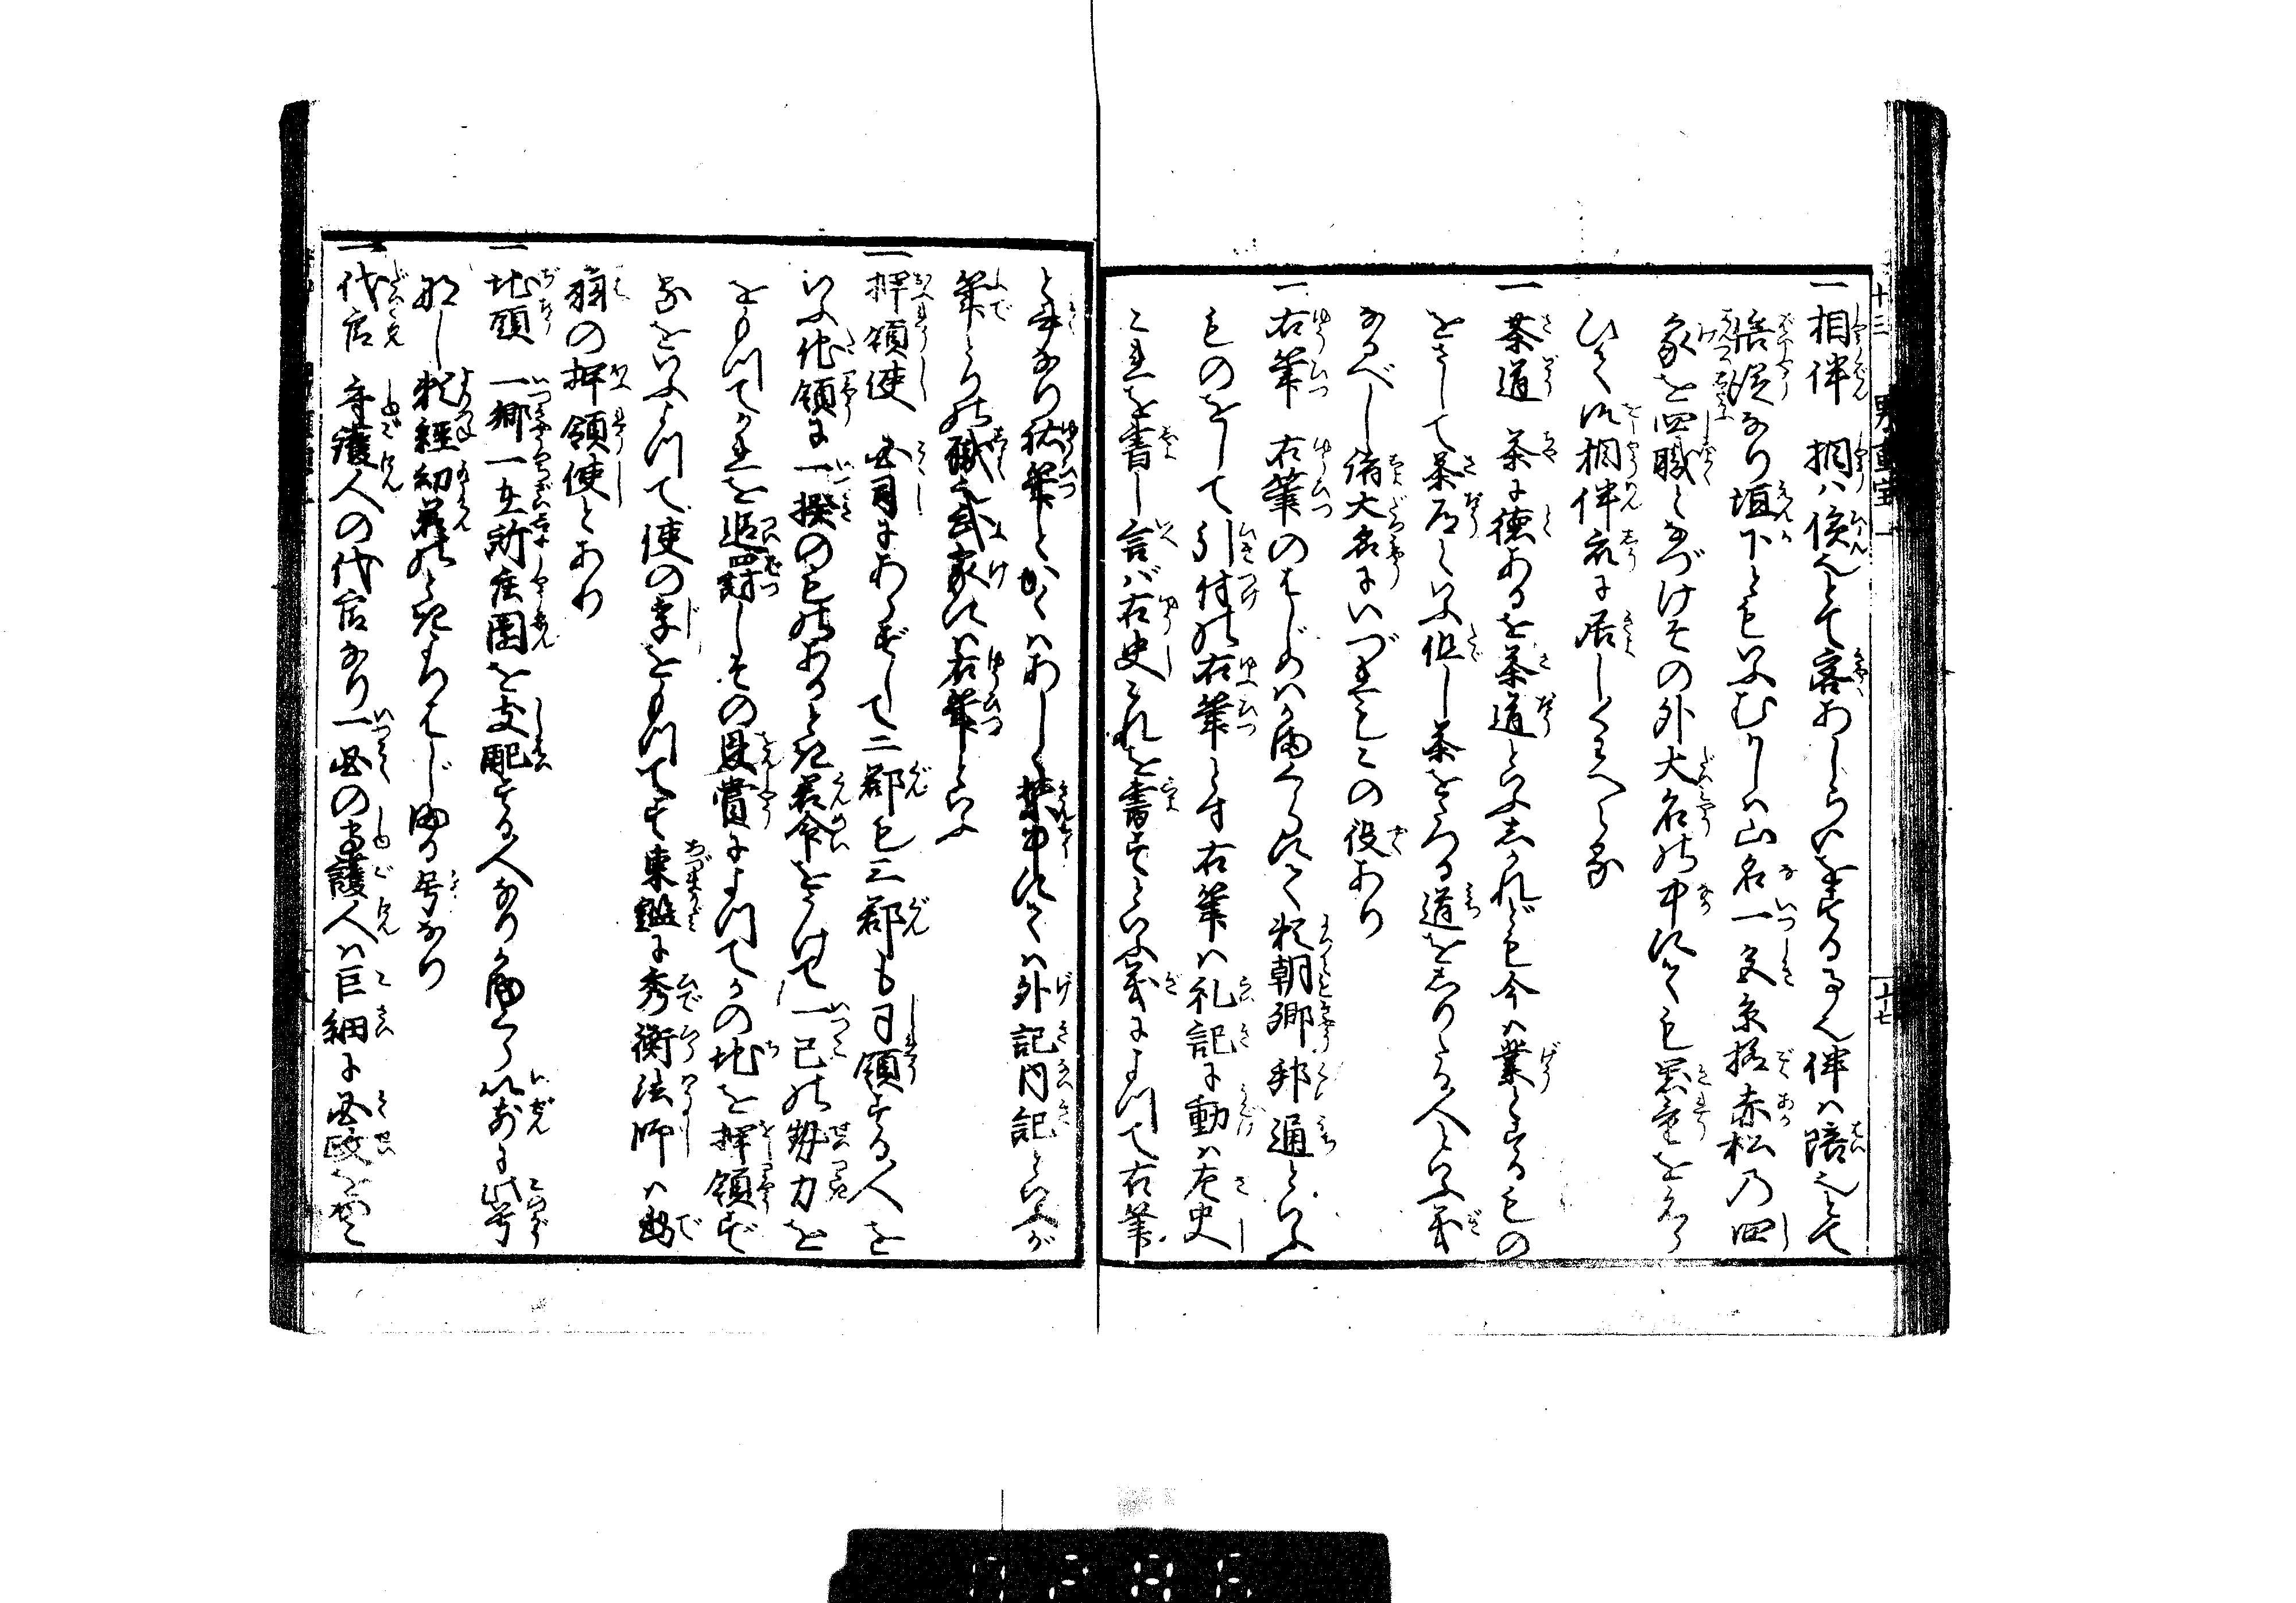 一相伴 相ハ儐也とて客あしらいをする事也伴ハ陪也とて
陪従なり垣下ともいふむかしハ山名一色京極赤松乃四
家を四職となづけその外大名の中にても器量をえら
ひて御相伴衆に居しくはへらる
一茶道 茶に徳あるを茶道といふしかれども今ハ業とするもの
をさして茶道といふ但し茶をたつる道をしりたる人といふ義
なるべし諸大名にいづれもこの役あり
一右筆 右筆のはじめハかまくらにて頼朝卿邦通といふ
ものをして引付の右筆とす右筆ハ礼記に動ハ左史
これを書し言バ右史これを書すといふ義によつて右筆
と書なり祐筆とかくハあしく禁中にてハ外記内記といふが
筆とりの職也武家にハ右筆といふ
一押領使 国司にあらずして二郡も三郡も司領する人を
いふ他領に一揆のものあるとき君命をうけて一己の勢力を
をもつてこれを追討しその恩賞によつてかの地を押領す
るをいふよつて使の字をもつてす東鑑に秀衡法師ハ出
羽の押領使とあり
一地頭 一郷一在所庄園を支配する人なりかまくら以前に此号
なし頼経幼若のときよりはじまる号なり
一代官 守護人の代官なり一国の守護人ハ巨細に国政を
男重宝一
十三
十七